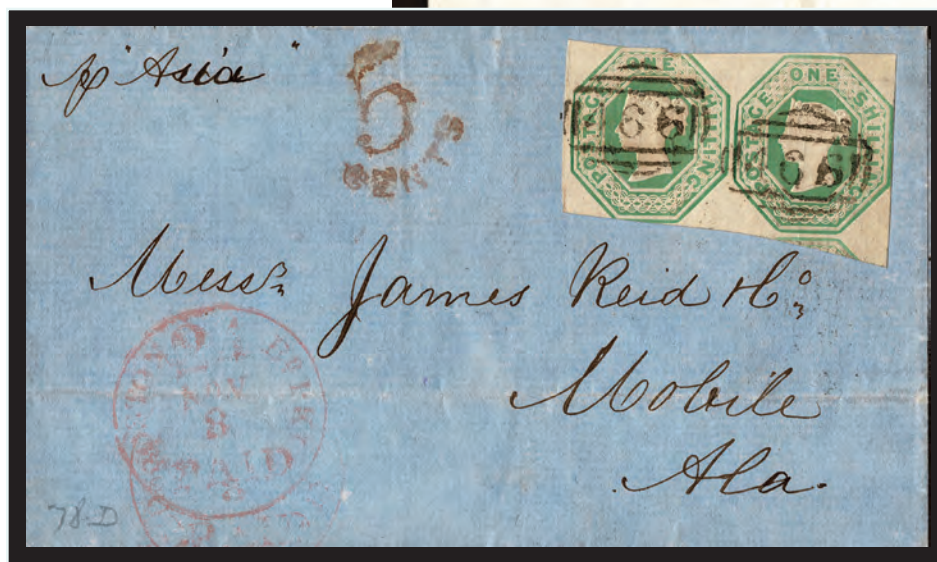 p "Asia"
5
CENTS
POSTAGE ONE SHILLING
POSTAGE ONE SHILLING
466
466
Messrs James Reid & Co
Mobile
Ala.
NOV
8
PAID
78-D